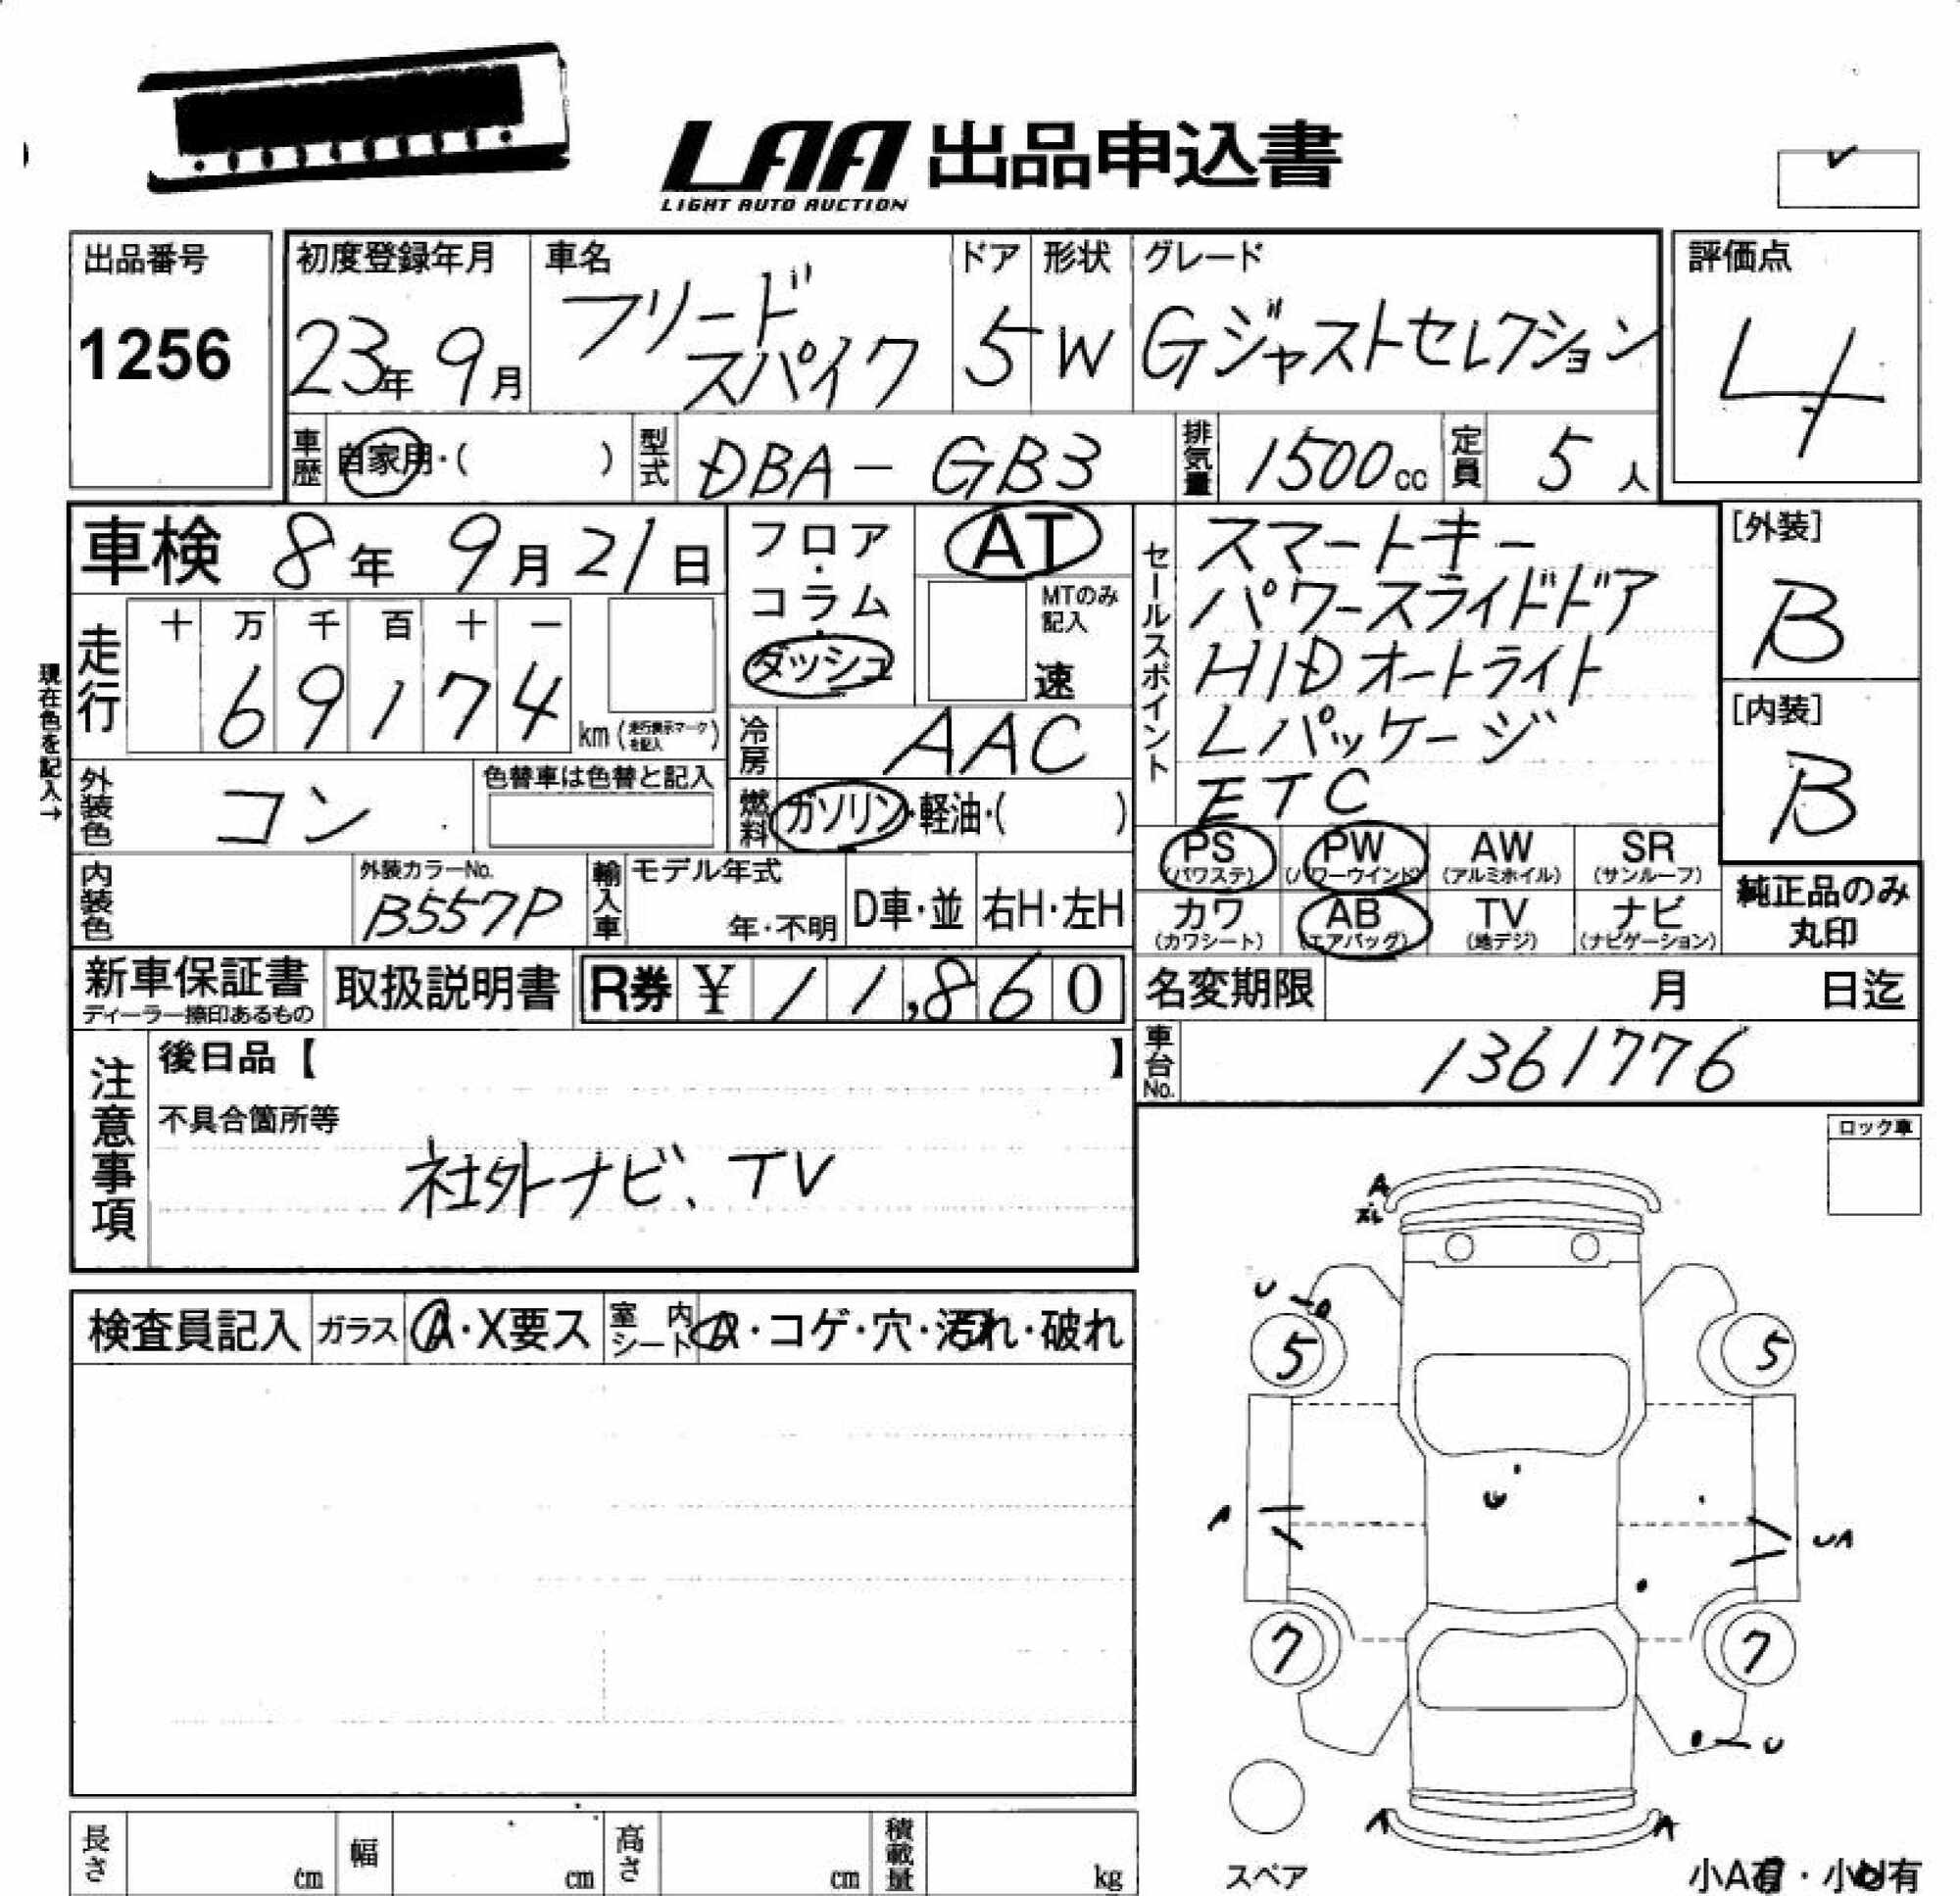 LAA 出品申込書
LIGHT AUTO AUCTION
出品番号
1256
初度登録年月
23年 9月
車名
フリード
スパイク
ドア
5
形状
W
グレード
Gジャストセレクション
評価点
4
車歴 自家用・( )
型式 DBA-GB3
排気量 1500cc
定員 5人
車検 8年 9月 21日
フロア・コラム・ダッシュ
AT
MTのみ記入
速
走行 十 万 千 百 十 一
69174 km (走行表示マークを記入)
現在色を記入→
外装色 コン
色替車は色替と記入
冷房 AAC
燃料 ガソリン・軽油・( )
セールスポイント
スマートキー
パワースライドドア
HIDオートライト
Lパッケージ
ETC
[外装]
B
[内装]
B
内装色
外装カラーNo.
B557P
輸入車
モデル年式
年・不明
D車・並
右H・左H
PS (パワステ)
PW (パワーウインド)
AW (アルミホイル)
SR (サンルーフ)
カワ (カワシート)
AB (エアバッグ)
TV (地デジ)
ナビ (ナビゲーション)
純正品のみ
丸印
新車保証書
ディーラー捺印あるもの
取扱説明書
R券 ¥ 11,860
名変期限 月 日迄
車台No. 1361776
注意事項
後日品【 】
不具合箇所等
社外ナビ、TV
ロック車
検査員記入 ガラス A・X要ス 室内シート A・コゲ・穴・汚れ・破れ
A
U
5
5
U
A
UA
7
7
U
A
A
スペア
小A有・小U有
長さ cm
幅 cm
高さ cm
積載量 kg